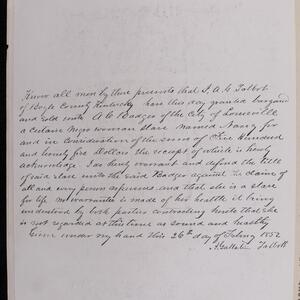 Know all men by these presents that I. A G Talbot
of Boyle County Kentucky have this day granted bargained
and sold unto A G Badger of the City of Louisville
a certain Negro woman slave named Nancy for
and in consideration of the sum of Five Hundred
and twenty five Dollars the receipt of which is hereby
acknowledged. I do hereby warrant and defend the title
of said slave unto the said Badger against the claim of
all and every person whatsoever and that she is a slave
for life. No warrantee is made of her health it being
understood by both parties contracting hereto that she
is not regarded at this time as sound and healthy
Given under my hand this 26th day of 1852
Talbott